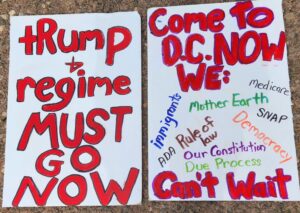 tRump
+
regime
MUST
GO
NOW
Come To
D.C. NOW
WE:
medicare
immigrants
Mother Earth
SNAP
Democracy
ADA
Rule of
law
Our Constitution
Due Process
Can't Wait